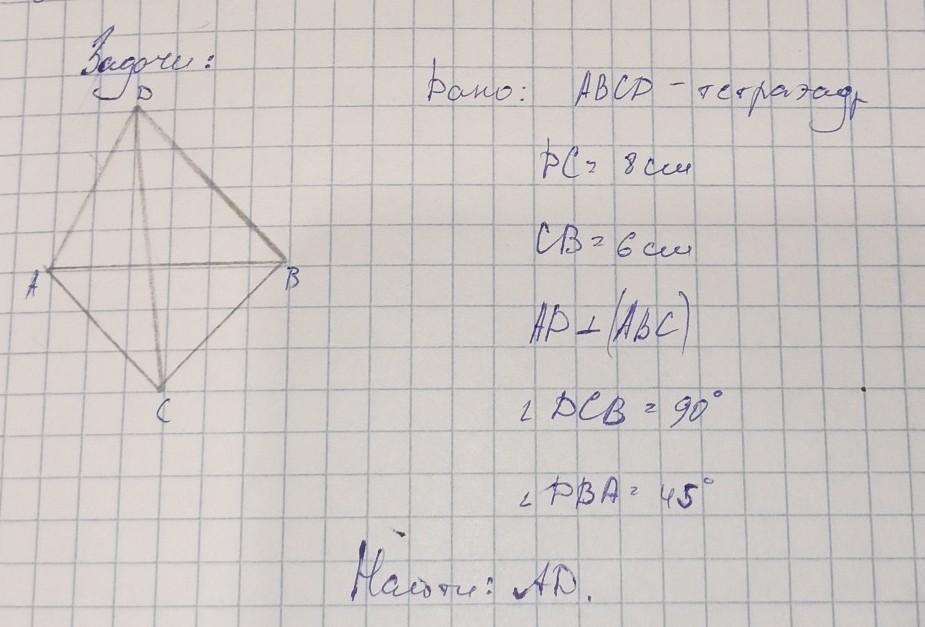 Задачи:
Дано: ABCD - тетраэдр
DC = 8 см
CB = 6 см
AD ⊥ (ABC)
∠ DCB = 90°
∠ DBA = 45°
Найти: AD.
D
A
B
C